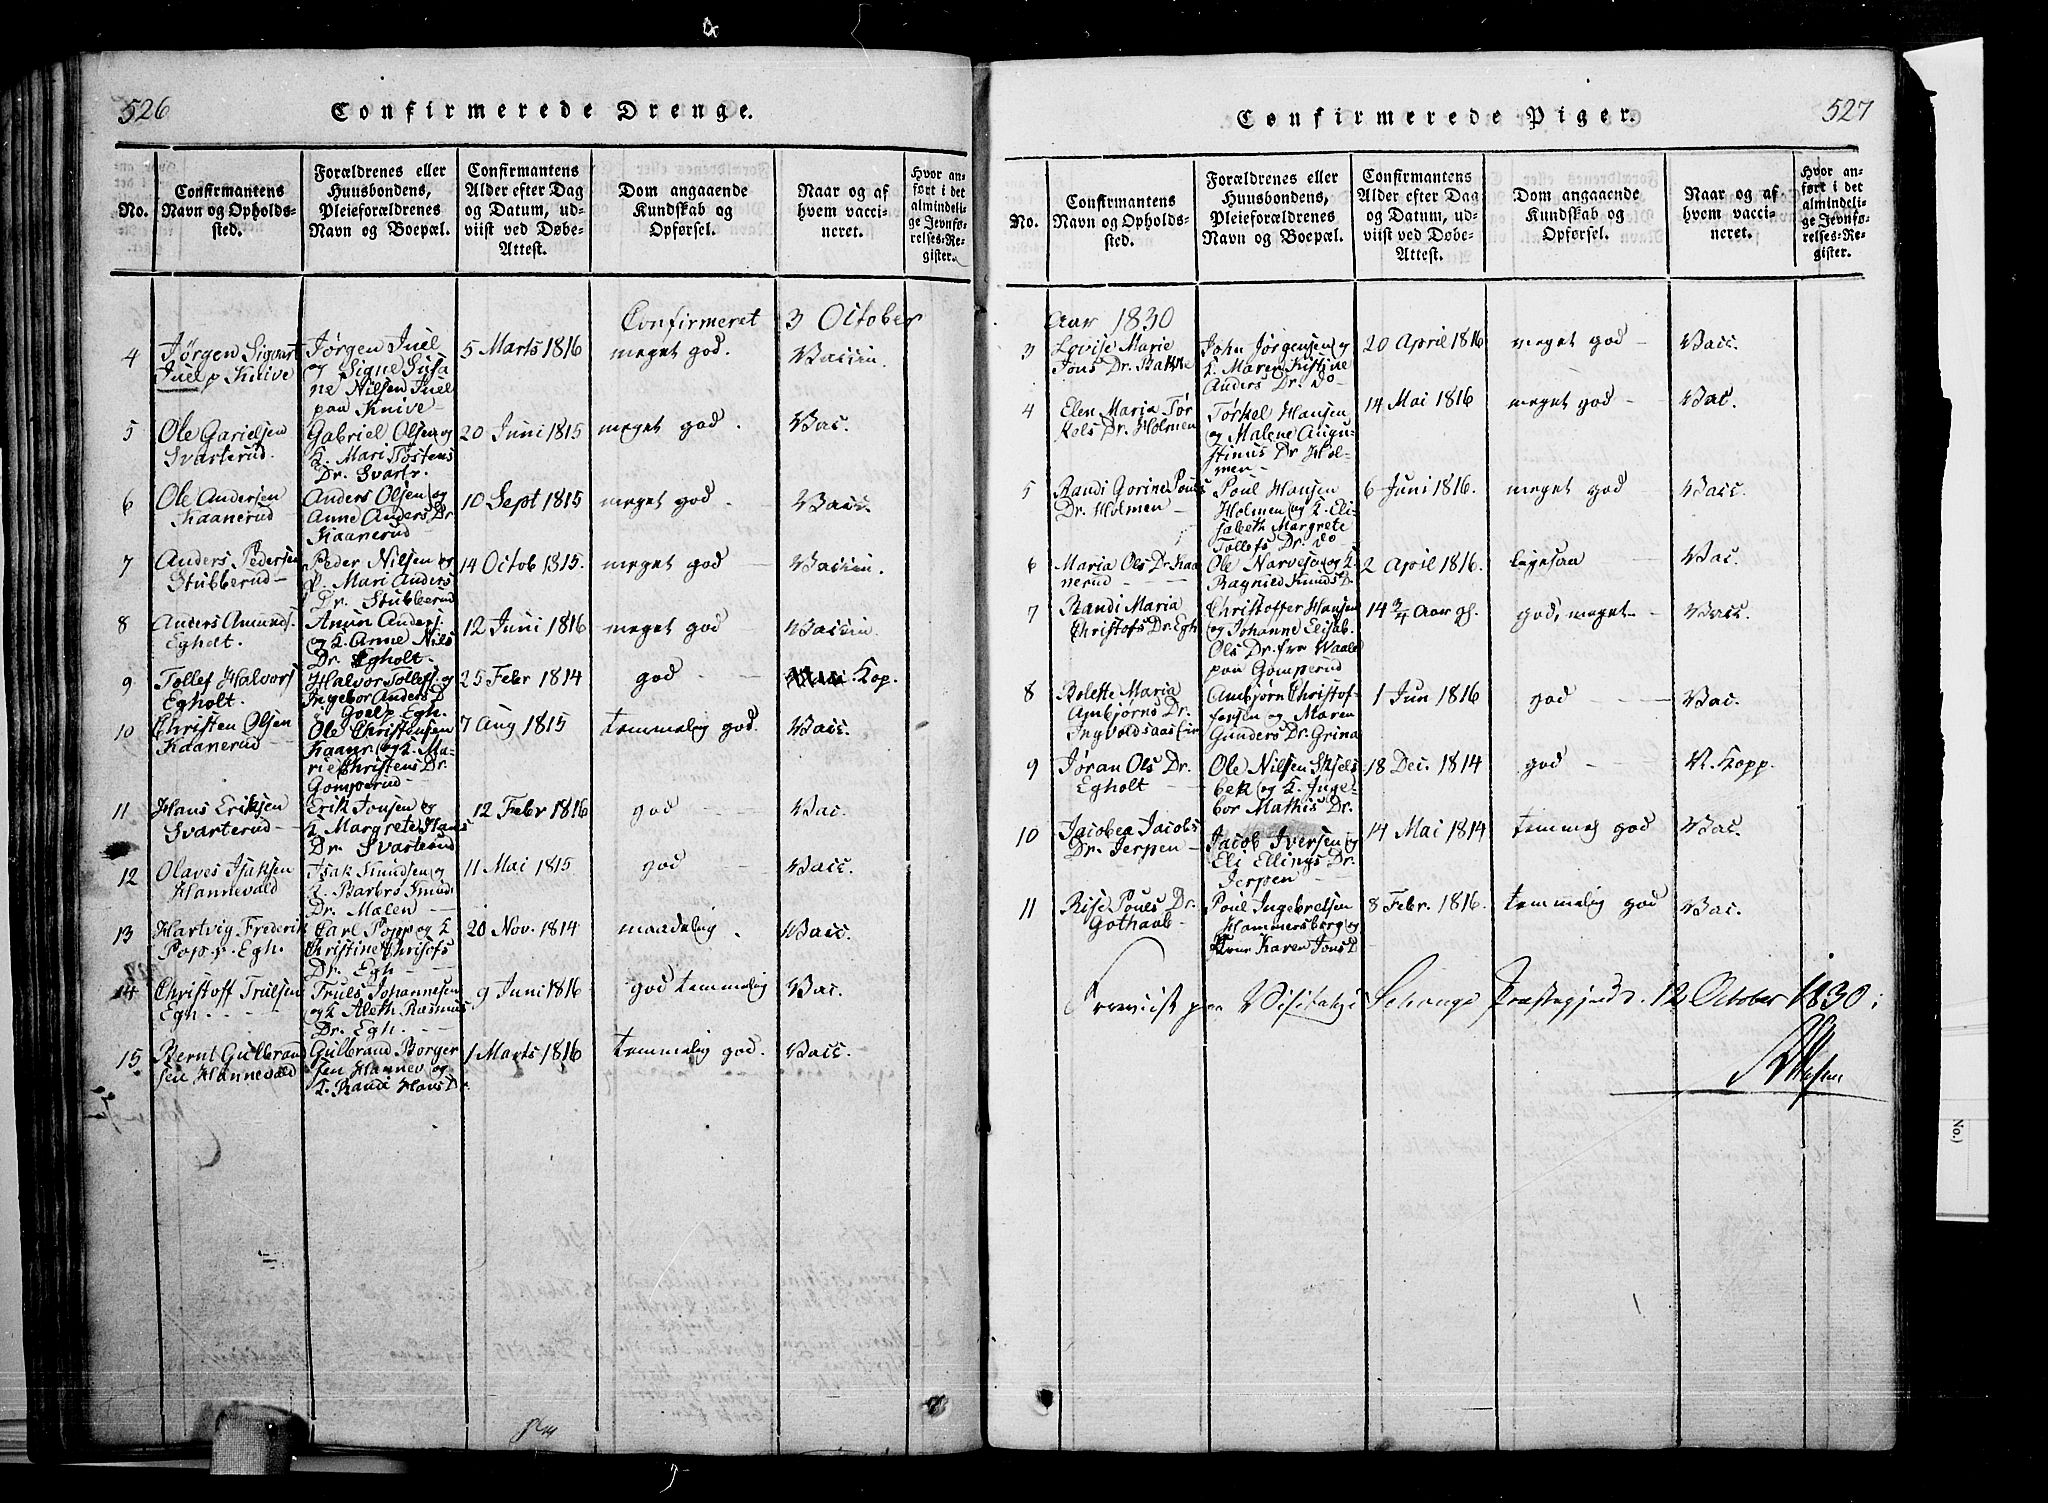 526
Confirmerede Drenge.
No.
Confirmantens
Navn og Opholds-
sted.
Forældrenes eller
Huusbondens,
Pleieforældrenes
Navn og Boepæl.
Confirmantens
Alder efter Dag
og Datum, ud-
viist ved Døbe-
Attest.
Dom angaaende
Kundskab og
Opførsel.
Naar og af
hvem vacci-
neret.
Hvor an-
ført i det
almindeli-
ge Jevnfø-
relses-Re-
gister.
Confirmeret 3 October
4
Jørgen Sigvart
Juel p Knive
Jørgen Juel
og Signe Susa
ne Nilsen Juel
paa Knive
5 Marts 1816
meget god.
Vaccin
5
Ole Garielsen
Svarterud
Gabriel Olsen og
K. Mari Tostens
Dr. Svartr.
20 Juni 1815
meget god.
Vac.
6
Ole Andersen
Kaanerud
Anders Olsen og
Anne Anders Dr
Kaanerud
10 Sept 1815
meget god.
Vacc.
7
Anders Pedersen
Stubberud
Peder Nilsen og
Mari Anders
Dr. Stubberud
14 Octob 1815.
meget god
Vaccin.
8
Anders Amunds.
Egholt.
Amun Anders.
og K. Anne Nils
Dr. Egholt.
12 Juni 1816
meget god
Vaccin.
9
Tollef Halvors
Egholt.
Halvor Tollefs. og
Ingebor Anders D
Egh.
25 Febr 1814
god
Kop.
10
Christen Olsen
Kaanerud
Ole Christensen
Kaanr og K. Ma-
rie Christens Dr.
Gomperud
7 Aug 1815
temmelig god.
Vacc.
11
Hans Eriksen
Svarterud
Erik Jonsen og
K Margrete Hans
Dr. Svarterud
12 Febr 1816
god
Vac.
12
Olaves Isaksen
Hannevald
Isak Knudsen og
K. Barbro Knuds
Dr. Mælen
11 Mai 1815
god
Vacc.
13
Hartvig Frederik
Pop. p. Egh.
Carl Popp og K
Christine Chrisofs
Dr. Egh
20 Nov. 1814
maadelig.
Vacc.
14
Christoff Trulsen
Egh.
Truls Johannesen
og K Aleth Rasmus
Dr. Egh.
9 Juni 1816
god temmelig
Vac.
15
Bernt Gulbrand
sen Hannevald
Gulbrand Borger
sen Hannev og
K. Randi Hans D
1 Marts 1816
temmelig god.
Vacc.
527
Confirmerede Piger.
No.
Confirmantens
Navn og Opholds-
sted.
Forældrenes eller
Huusbondens,
Pleieforældrenes
Navn og Boepæl.
Confirmantens
Alder efter Dag
og Datum, ud-
viist ved Døbe-
Attest.
Dom angaaende
Kundskab og
Opførsel.
Naar og af
hvem vacci-
neret.
Hvor an-
ført i det
almindeli-
ge Jevnfø-
relses-Re-
gister.
Aar 1830
3
Lovise Marie
Jons Dr. Bakke
John Jørgensen og
K. Maren Kistine
Anders Dr. do
20 April 1816
meget god
Vacc.
4
Elen Maria Tør
kels Dr. Holmen
Tørkel Hansen
og Malene Augu-
stinus Dr Hol-
men
14 Mai 1816
meget god
Vac.
5
Randi Gorine Pouls
Dr. Holmen
Poul Hansen
Holmen og K. Eli-
sabeth Margrete
Tollefs Dr. do
6 Juni 1816.
meget god
Vacc.
6
Maria Ols Dr. Kaa
nerud
Ole Narvesen og K
Ragnild Knuds D.
2 April 1816.
ligesaa
Vac.
7
Randi Maria
Christofs Dr. Egh
Christoffer Hansen
og Johanne Elisab.
Ols Dr. fra Waale
paa Gomperud
14 3/4 Aar gl.
god, meget
Vacc.
8
Bolette Maria
Ambjørns Dr.
Ingvoldsaas
Ambjørn Christof
fersen og Maren
Gunders Dr. Grina
1 Jun 1816
god
Vac.
9
Jøran Ols Dr.
Egholt
Ole Nilsen Skjels
bek og K. Inge-
bor Mathis Dr.
18 Dec. 1814
god
N. Kopp.
10
Jacobea Jacobs
Dr. Jerpen
Jacob Iversen og
Eli Ellings Dr.
Jerpen
14 Mai 1814
temmel god
Vac.
11
Rise Pouls Dr.
Gothaab
Poul Ingebretsen
Hammersborg og
Karen Jons D
8 Febr. 1816.
temmelig god
Vac.
Foreviist paa Visitatzi Præstegjeld d. 12 October 1830.
No.)